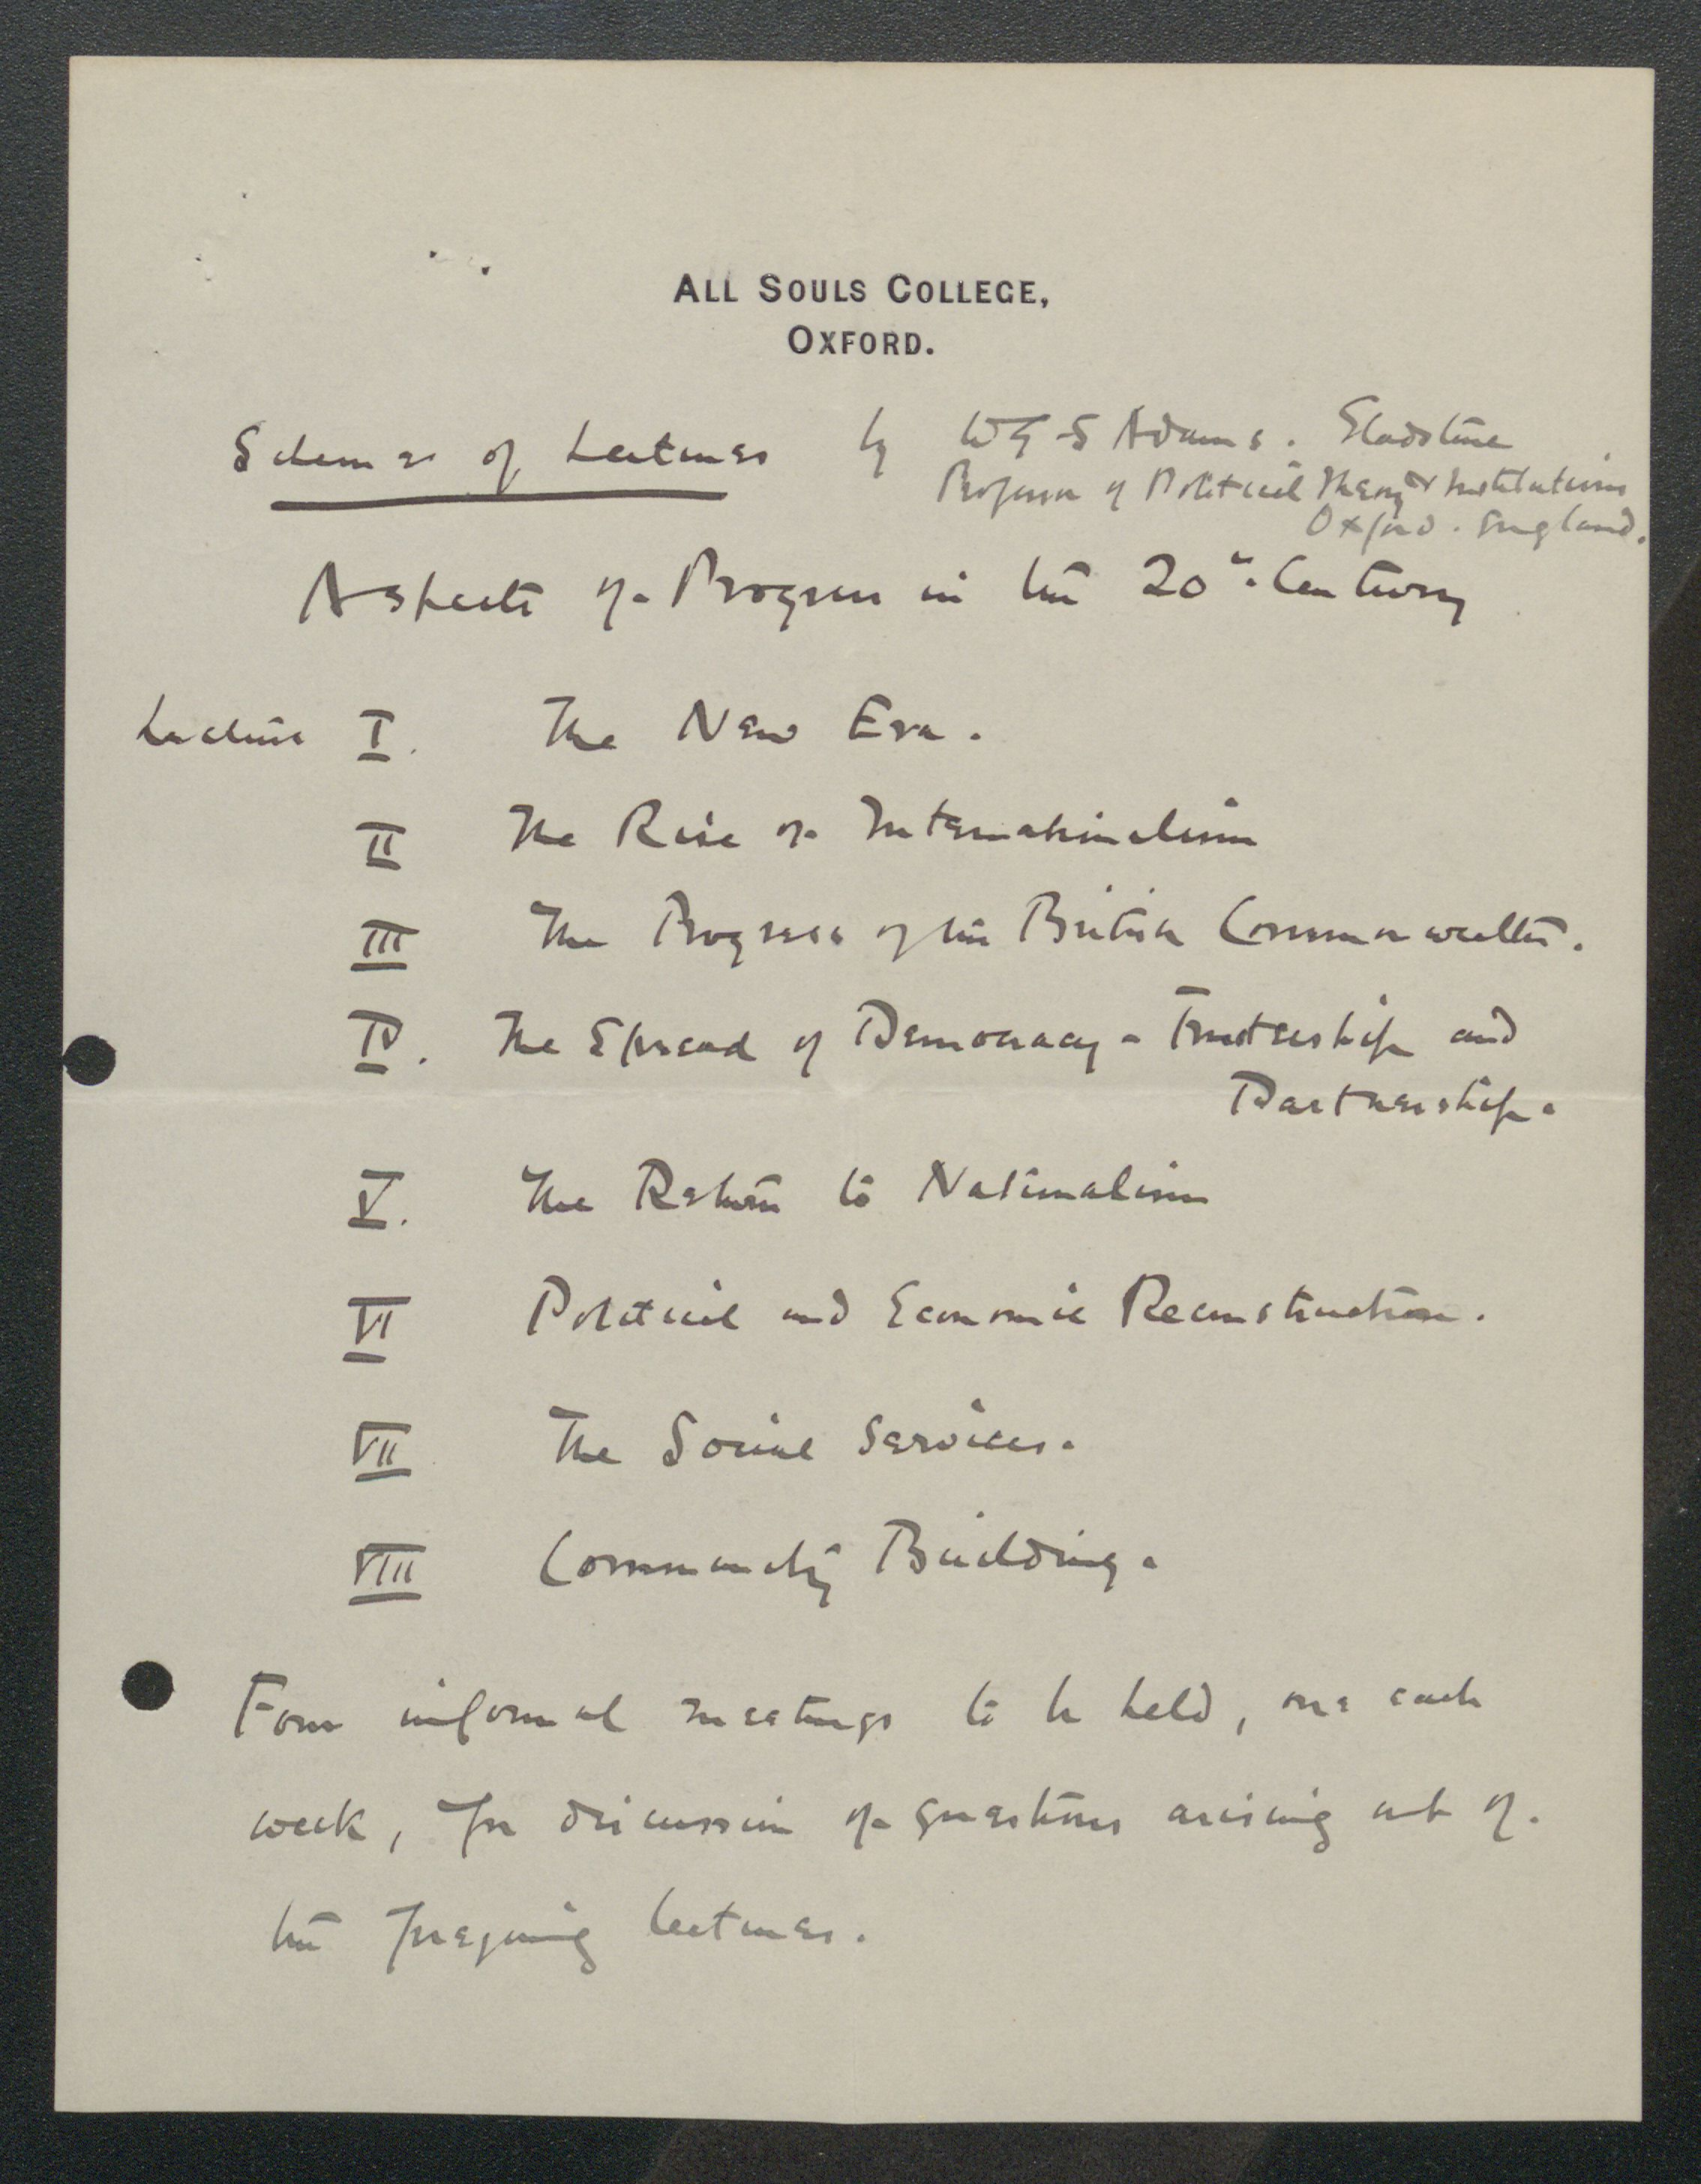 ALL SOULS COLLEGE,
OXFORD.
Scheme of Lectures by W G S Adams. Gladstone
Professor of Political Theory & Institutions
Oxford. England.
Aspects of Progress in the 20th Century
Lecture I. The New Era.
II The Rise of Internationalism
III The Progress of the British Commonwealth.
IV. The Spread of Democracy - Trusteeship and
Partnership.
V. The Return to Nationalism
VI Political and Economic Reconstruction.
VII The Social Services.
VIII Community Building.
Four informal meetings to be held, one each
week, for discussion of questions arising out of
the foregoing lectures.